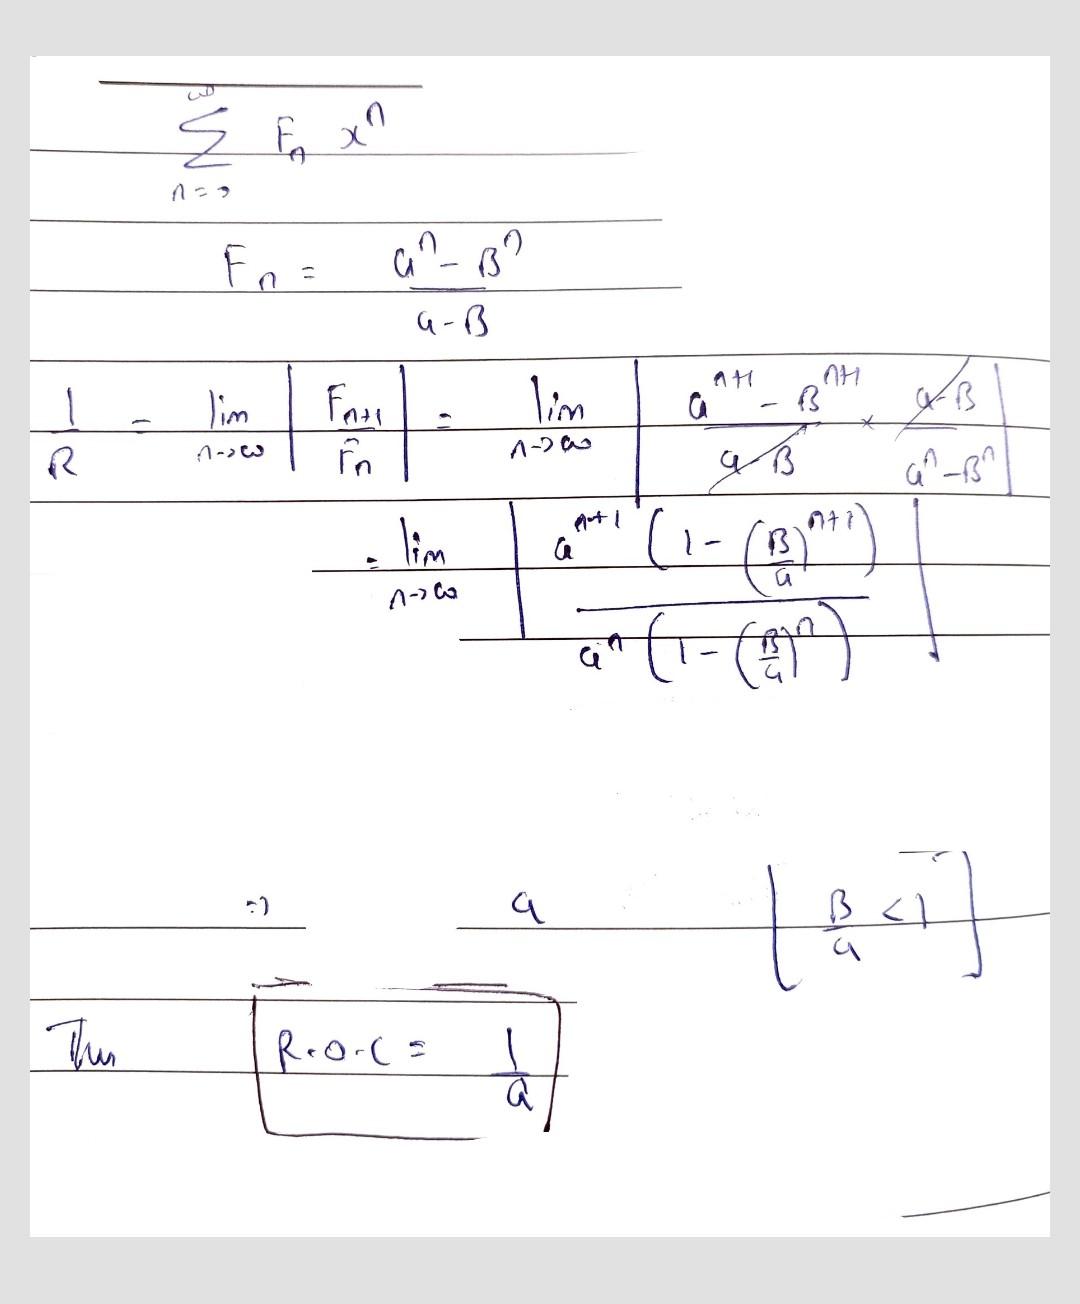 ∞
Σ Fₙ xⁿ
n=0
Fₙ = (aⁿ - βⁿ) / (a - β)
1/R = lim n→∞ | Fₙ₊₁ / Fₙ | = lim n→∞ | (aⁿ⁺¹ - βⁿ⁺¹) / (a - β) × (a - β) / (aⁿ - βⁿ) |
= lim n→∞ | aⁿ⁺¹ (1 - (β/a)ⁿ⁺¹) / aⁿ (1 - (β/a)ⁿ) |
=) a [ β/a < 1 ]
Thus R.O.C = 1/a